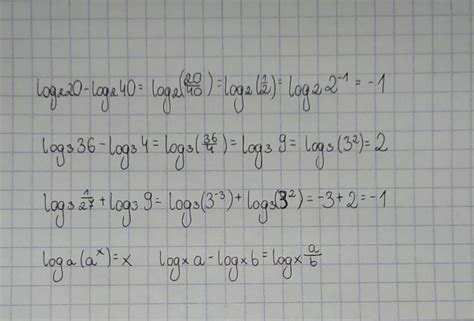 log₂20 - log₂40 = log₂(20/40) = log₂(1/2) = log₂2⁻¹ = -1
log₃36 - log₃4 = log₃(36/4) = log₃9 = log₃(3²) = 2
log₃ 1/27 + log₃9 = log₃(3⁻³) + log₃(3²) = -3 + 2 = -1
logₐ(aˣ) = x    logₓa - logₓb = logₓ a/b